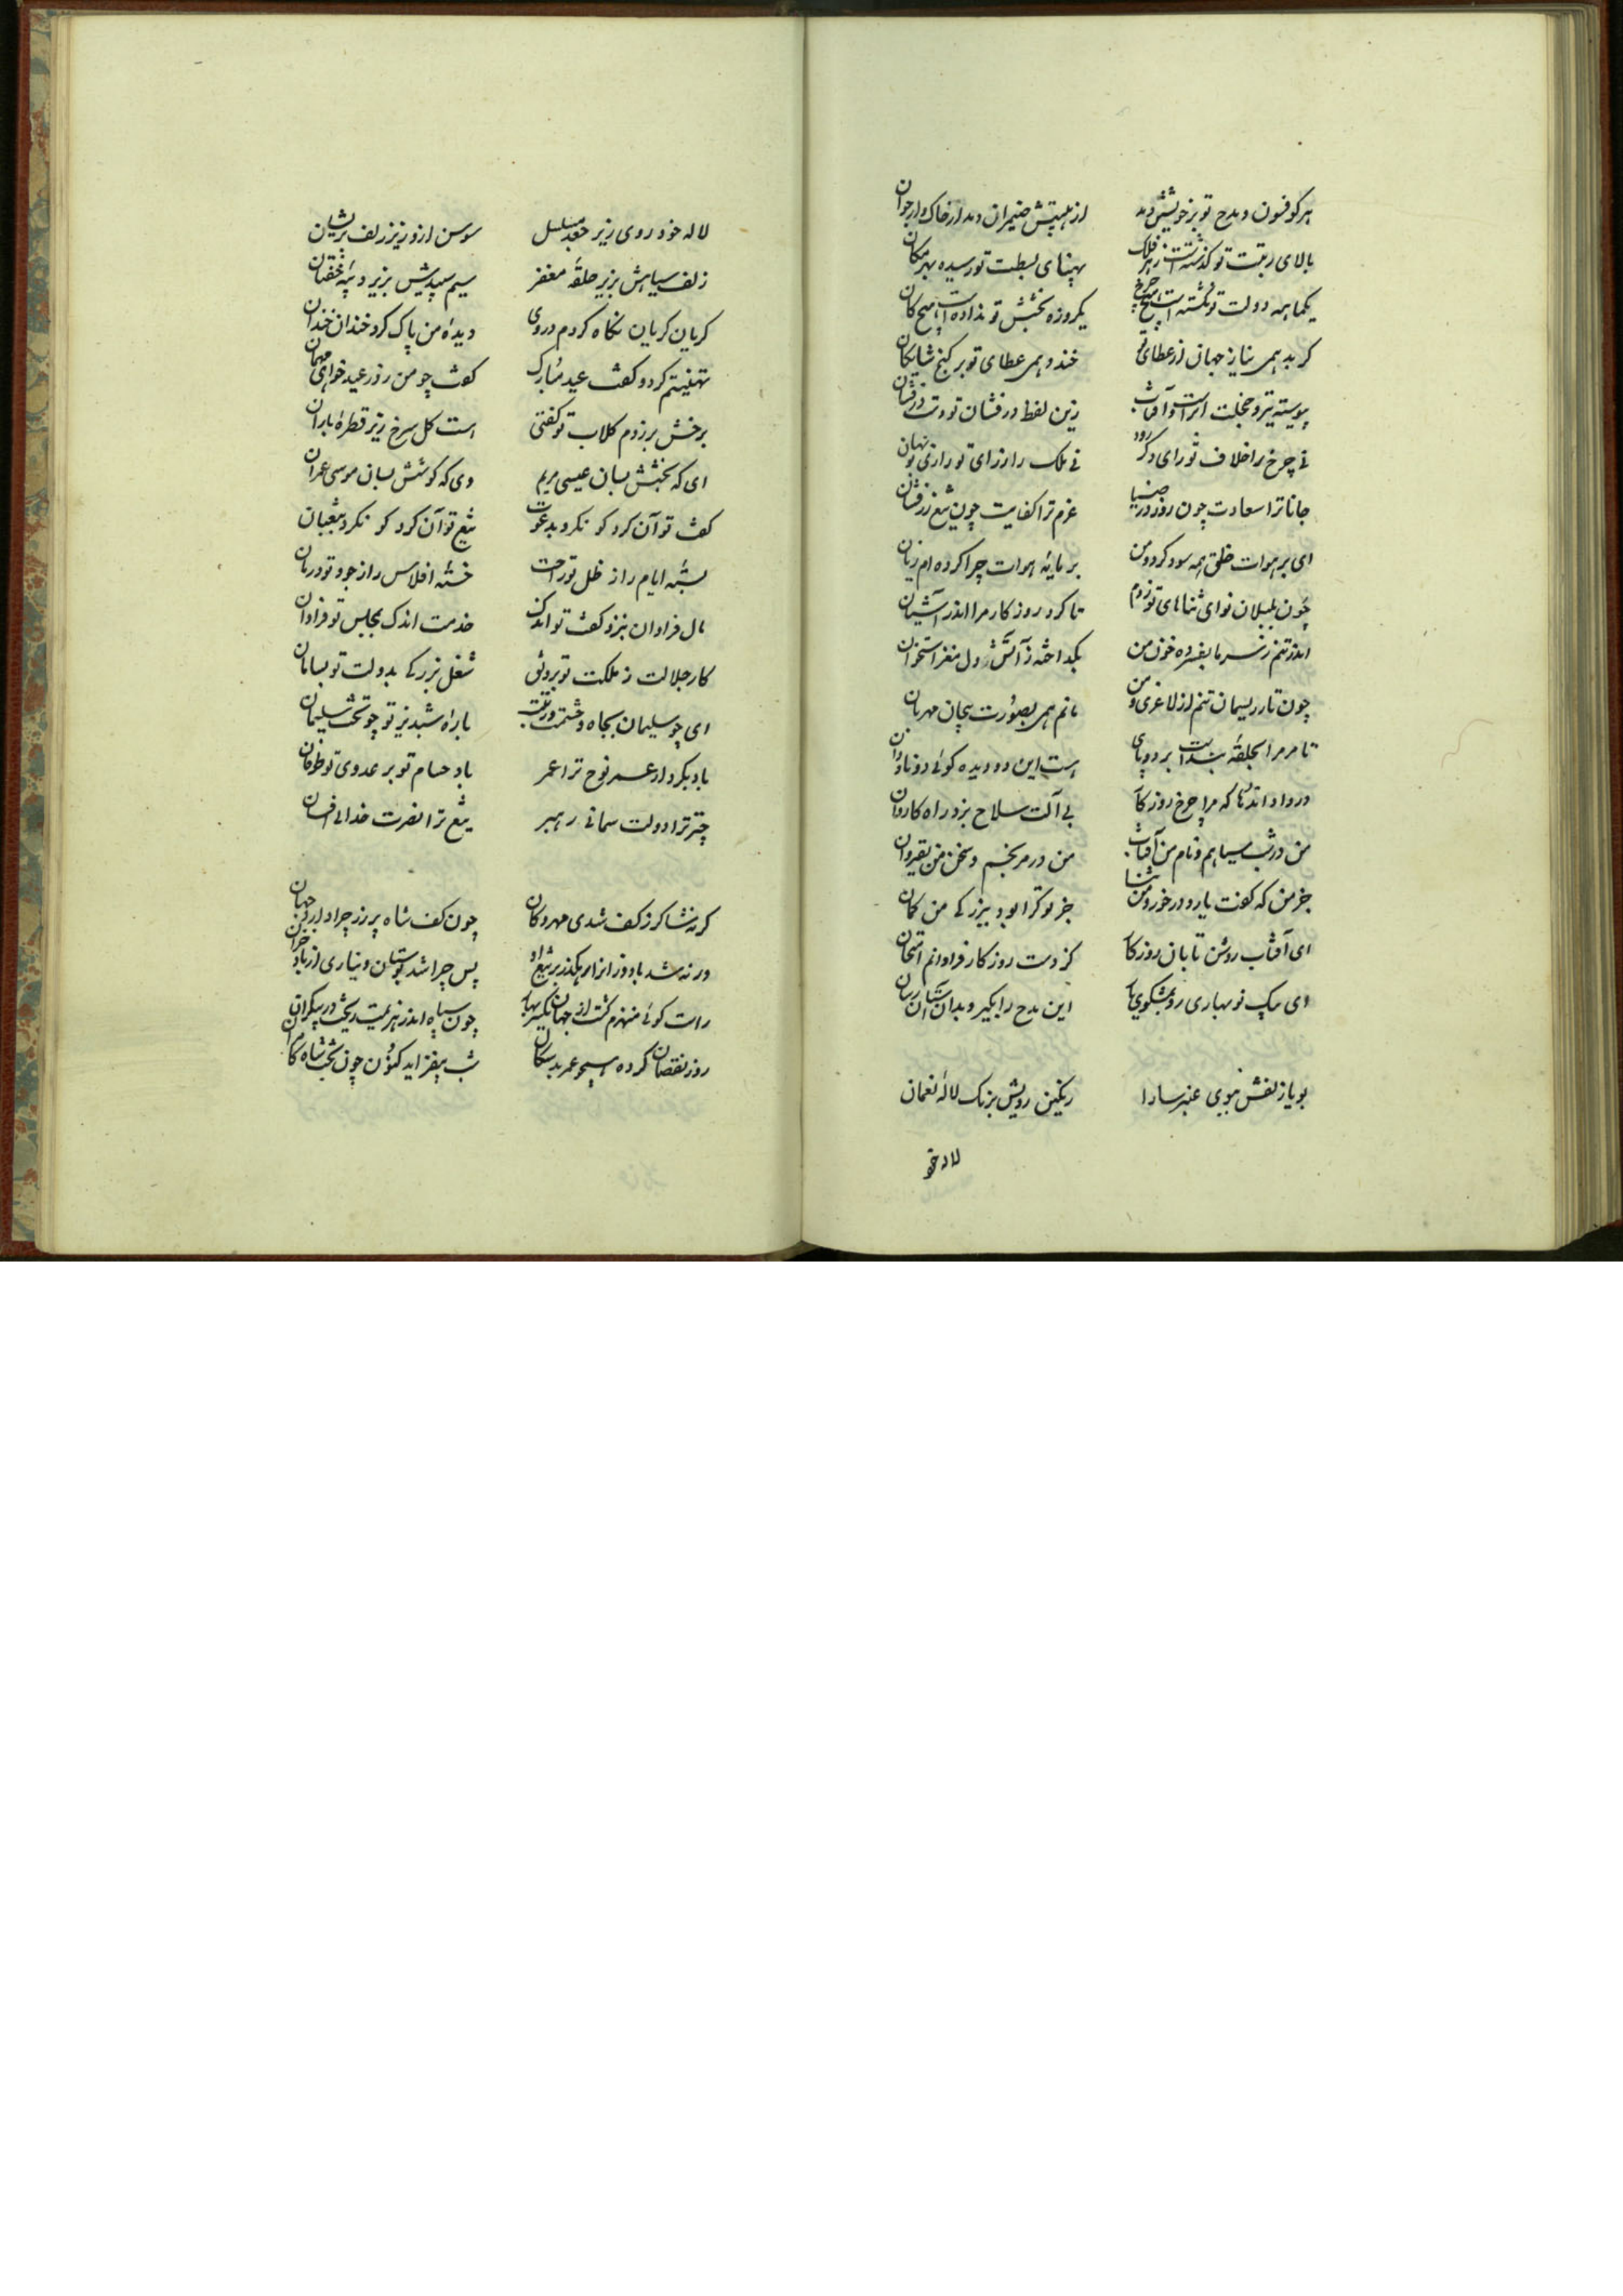 هرکو فسون مدح تو بر خویشتن دمد ازهیبتش ضیمران دمد از خاک وارجوان
بالای رتبت تو گذشته است ز هر فلک پهنای بسطت تو رسیده بهر مکان
یکماهه دولت تو نگشته است هیچ چرخ یکروزه بخشش تو نداده است هیچ کان
کرید همی نیاز جهان از عطای تو خندد همی عطای تو بر کنج شایکان
پیوسته تیره و خجلت ابر است و آفتاب زین لفظ درفشان تو و دست زرفشان
نی چرخ را خلاف تو رای دکر رود نی ملک را ز رای تو رازی بود نهان
جانا ترا سعادت چون روز در ضیا عزم ترا کفایت چون تیغ زرفشان
ای بر هوات خلق همه سود کرد و من بر مایه هوات چرا کرده ام زیان
چون بلبلان نوای ثناهای تو زدم تا کرد روزکار مرا اندر آشیان
اندر تنم ز سرما بفسرده خون من بکداخته ز آتش دل مغز استخوان
چون تار ریسمان تنم از لاغری و من مانم همی بصورت بیجان مهربان
تا مر مرا بحلقه بند است بر دو پای هست این دو دیده کوئی دو ناودان
دردا و اندها که مرا چرخ روزکار بی آلت سلاح بزد راه کاروان
من در شب سیاهم و نام من آفتاب من در مرنجم و سخن من بقیروان
جز من که کفت یارد در خورد من ثنا جز تو کرا بود بیزرکی من کمان
ای آفتاب روشن تابان روزکار کز دست روزکار فراوانم امتحان
ای پیک نوبهاری رو بمشکوی یار این مدح را بگیر و بدان آستان رسان
بویا زلفش ببوی عنبر سارا رنکین رویش برنک لاله نعمان
لاله خو
لاله خود روی زیر جعد مسلسل سوسن ازو زیر زلف پریشان
زلف سیاهش بزیر حلقه مغفر سیم سپیدش بزیر دیبه خفتان
کریان کریان نکاه کردم در وی دیده من پاک کرد خندان خندان
تهنیتم کرد و کفت عید مبارک کفت چو من روز عید خواهی مهمان
بر رخش بر زدم کلاب تو کفتی است کل سرخ زیر قطره باران
ای که بخشش بسان عیسی مریم وی که کوشش بسان موسی عمران
کف تو آن کرد کو نکرد بدعوت تیغ تو آن کرد کو نکرد بثعبان
بسته ایام را ز ظل تو راحت خسته افلاس را ز جود تو درمان
مال فراوان بنزد کفت تو اندک خدمت اندک بمجلس تو فراوان
کار جلالت ز ملکت تو برونق شغل بزرکی بدولت تو بسامان
ای چو سلیمان بجاه و حشمت و رتبت باره شبدیز تو چو تخت سلیمان
باد بکردار عمر نوح ترا عمر باد حسام تو بر عدوی تو طوفان
چتر ترا دولت سمائی رهبر تیغ ترا نصرت خدائی افسان
کر نه شاکر ز کف شدی مهرکان چون کف شاه پر زر چرا دارد جهان
ور نه شد باد وزان از رهکذر بر تیغ او پس چرا شد بوستان دیناری از باد خزان
راست کوئی منهزم کشت از جهان یکسر بهار چون سپاه اندر هزیمت ریخت در بیکران
روز نقصان کرده همچو عمر بدسکال شب بیفزاید کنون چون بخت شاه کامران